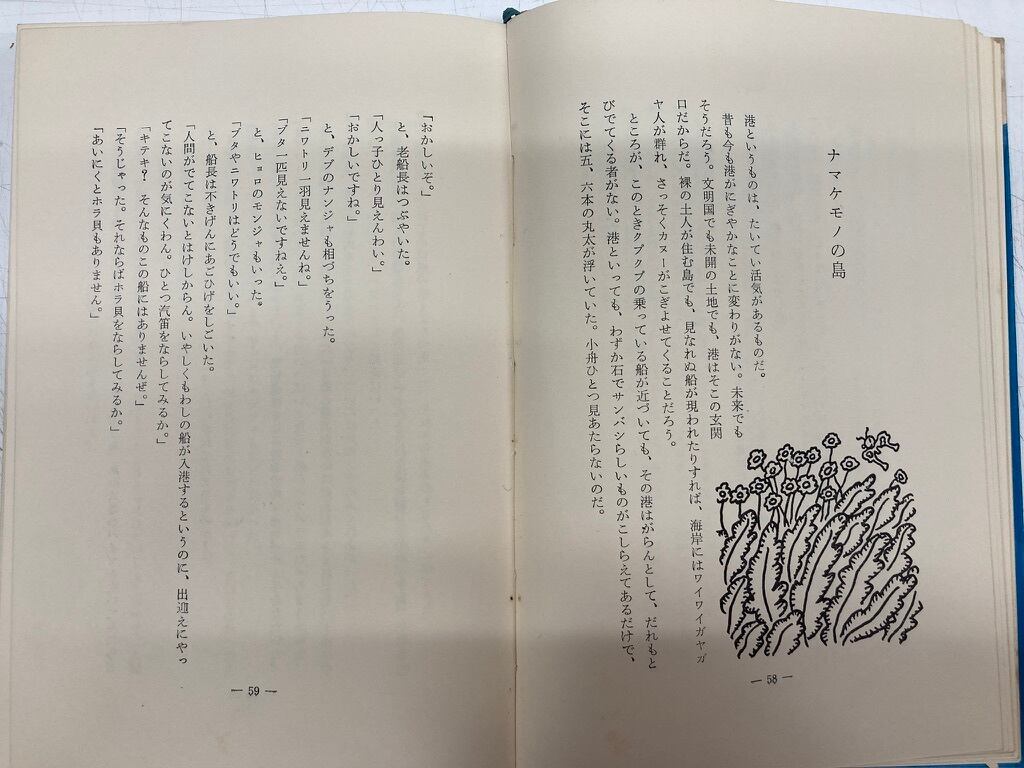 ナマケモノの島
港というものは、たいてい活気があるものだ。
昔も今も港がにぎやかなことに変わりがない。未来でも
そうだろう。文明国でも未開の土地でも、港はそこの玄関
口だからだ。裸の土人が住む島でも、見なれぬ船が現われたりすれば、海岸にはワイワイガヤガ
ヤ人が群れ、さっそくカヌーがこぎよせてくることだろう。
ところが、このときクプクプの乗っている船が近づいても、その港はがらんとして、だれもと
びでてくる者がない。港といっても、わずか石でサンバシらしいものがこしらえてあるだけで、
そこには五、六本の丸太が浮いていた。小舟ひとつ見あたらないのだ。
— 58 —
「おかしいぞ。」
と、老船長はつぶやいた。
「人っ子ひとり見えんわい。」
「おかしいですね。」
と、デブのナンジャも相づちをうった。
「ニワトリ一羽見えませんね。」
「ブタ一匹見えないですねえ。」
と、ヒョロのモンジャもいった。
「ブタやニワトリはどうでもいい。」
と、船長は不きげんにあごひげをしごいた。
「人間がでてこないとはけしからん。いやしくもわしの船が入港するというのに、出迎えにやっ
てこないのが気にくわん。ひとつ汽笛をならしてみるか。」
「キテキ？ そんなものこの船にはありませんぜ。」
「そうじゃった。それならばホラ貝をならしてみるか。」
「あいにくとホラ貝もありません。」
— 59 —